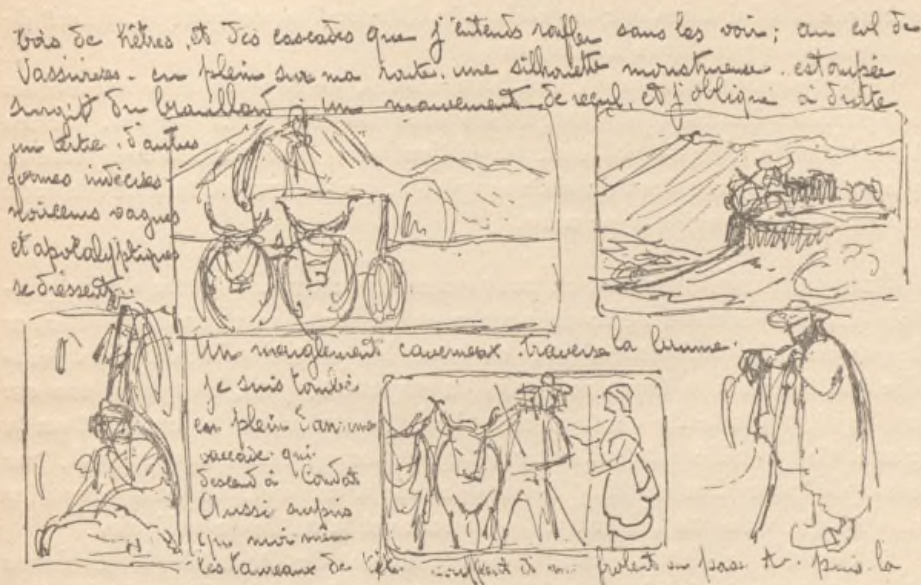 bois de hêtres, et des cascades que j'entends ronfler sans les voir; au col de
Vassivières. en plein sur ma route, une silhouette monstrueuse, estompée
surgit du brouillard; un mouvement de recul, et j'oblique à droite
un tertre, d'autres
formes indécises
noirceurs vagues
et apocalyptiques
se dressent.
Un meuglement caverneux traverse la brume.
Je suis tombé
en plein dans une
vacade qui
descend à Condat
Aussi surpris
que moi même
les taureaux de tête soufflent et me frolent en passant. puis la